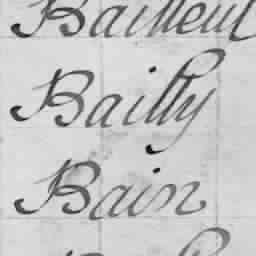 Bailleul
Bailly
Bain